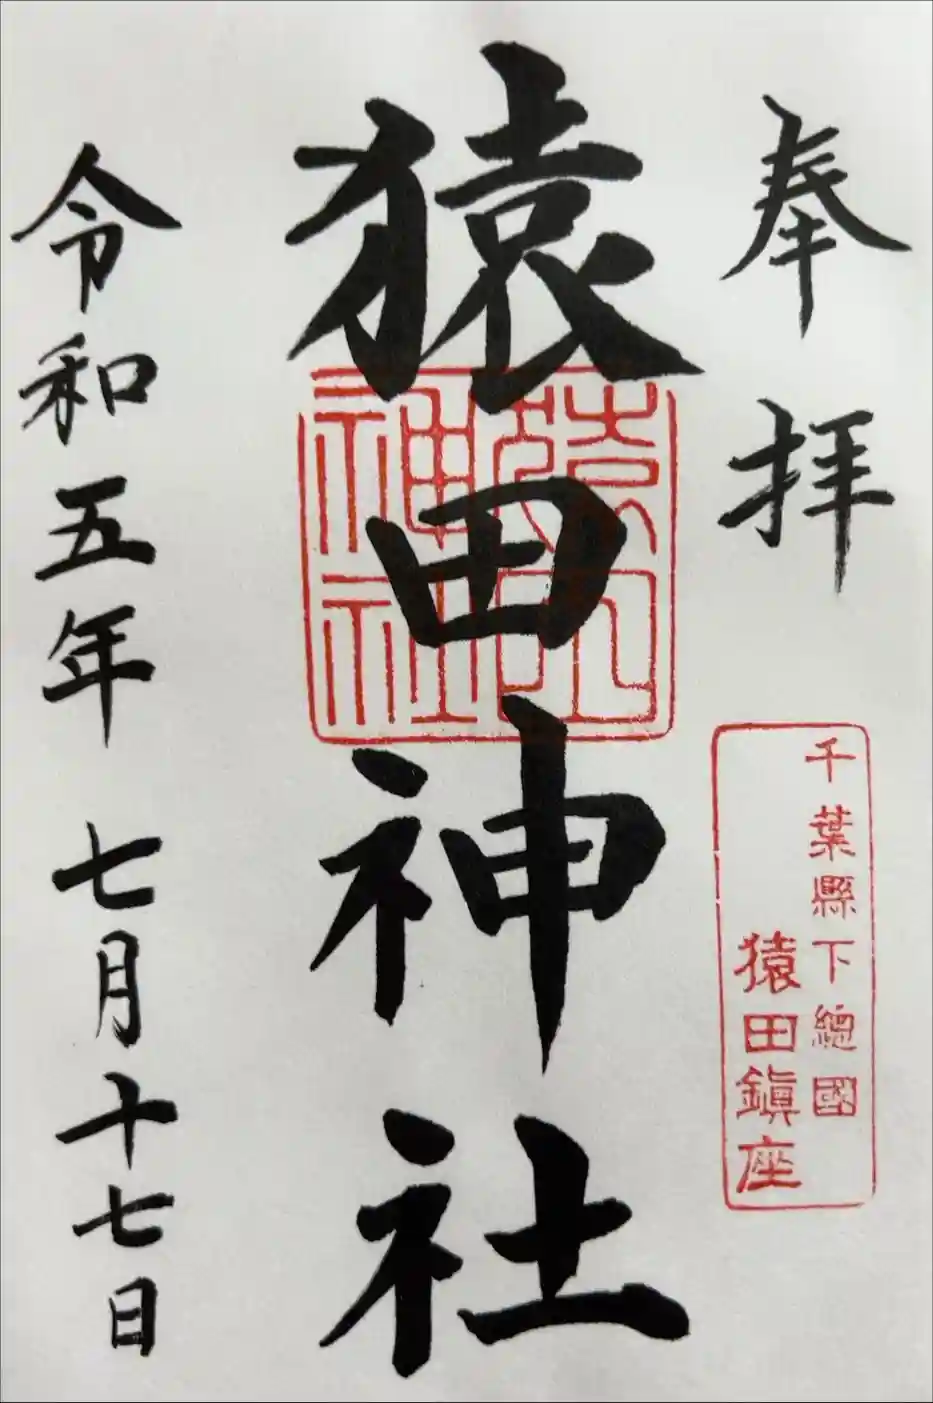 奉拝
千葉縣下總國
猿田鎭座
猿田神社
猿田神社
令和五年七月十七日